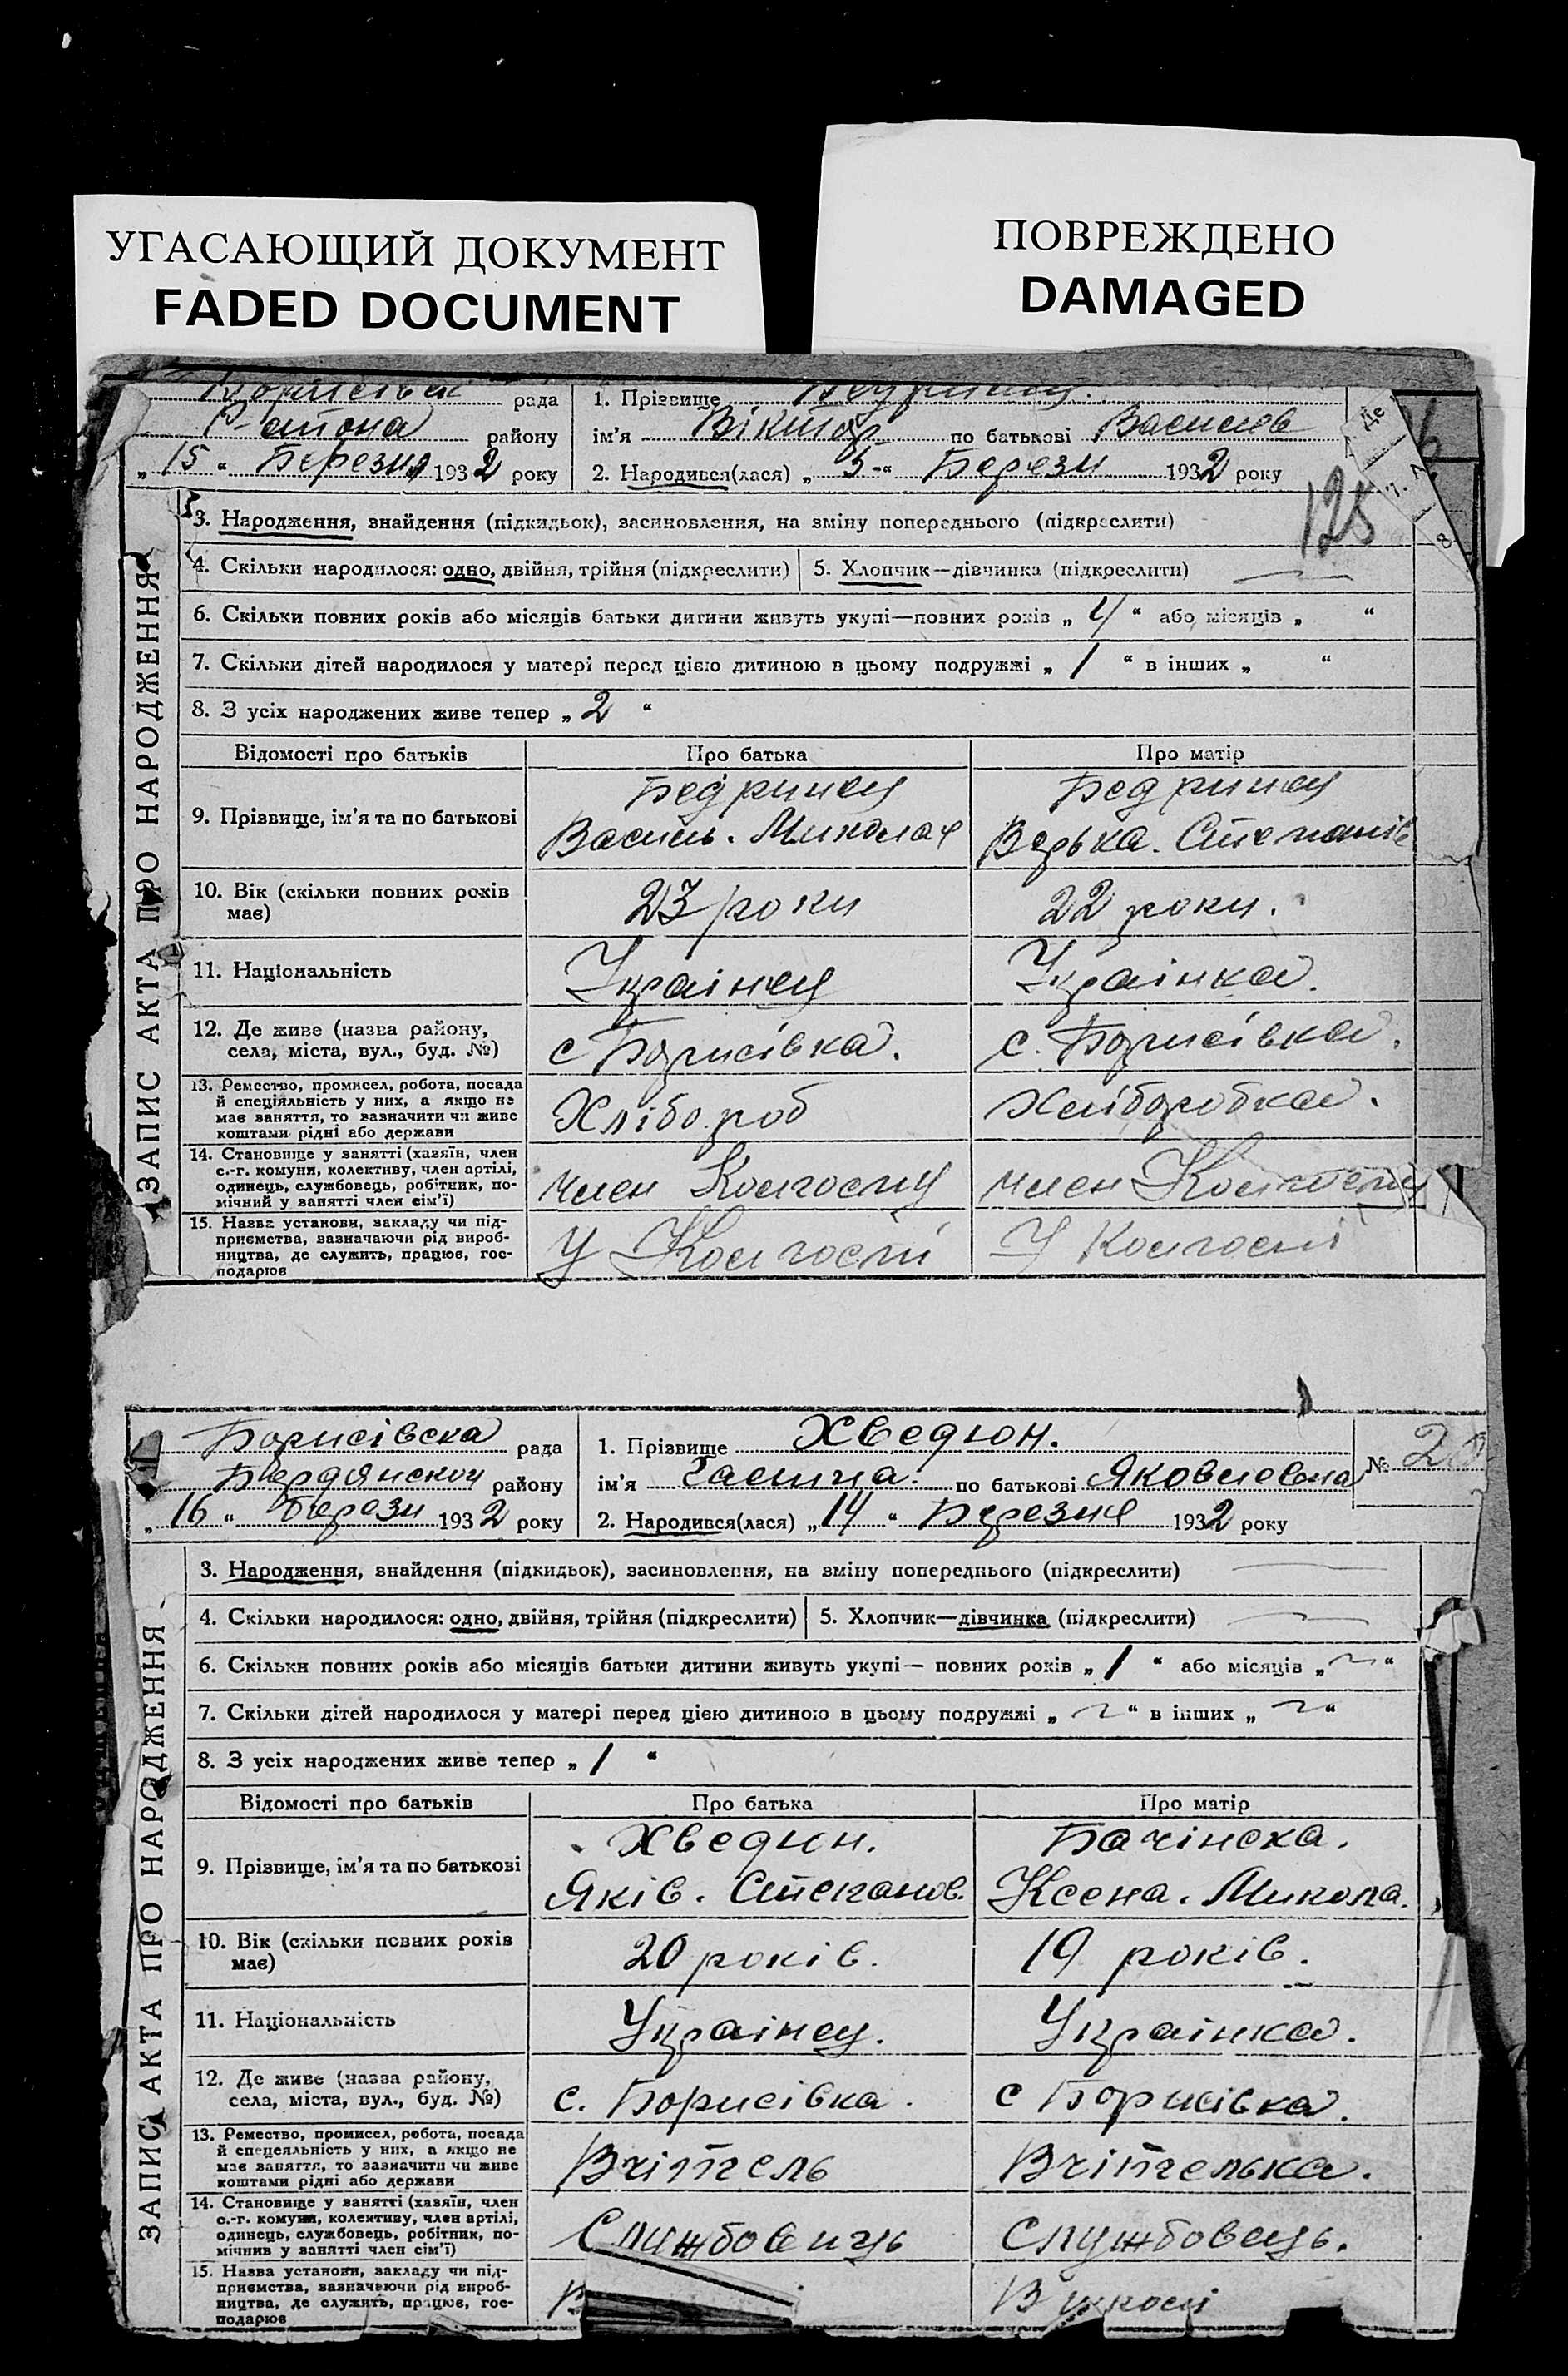 УГАСАЮЩИЙ ДОКУМЕНТ
FADED DOCUMENT
ПОВРЕЖДЕНО
DAMAGED
рада
1. Прізвище
району
ім'я Віктор по батькові Василев
Де
„ 15 “ Березня 1932 року
2. Народився(лася) „ 5 “ Березн 1932 року
125
8
ЗАПИС АКТА ПРО НАРОДЖЕННЯ
3. Народження, знайдення (підкидьок), засиновлення, на зміну попереднього (підкреслити)
4. Скільки народилося: одно, двійня, трійня (підкреслити)
5. Хлопчик—дівчинка (підкреслити)
6. Скільки повних років або місяців батьки дитини живуть укупі—повних років „ 4 “ або місяців „ “
7. Скільки дітей народилося у матері перед цією дитиною в цьому подружжі „ 1 “ в інших „ “
8. З усіх народжених живе тепер „ 2 “
Відомості про батьків
Про батька
Про матір
9. Прізвище, ім'я та по батькові
Бедринец
Василь. Миколае
Бедринец
Степанів
10. Вік (скільки повних років
має)
23 роки
22 роки.
11. Національність
Украінец
Украінка.
12. Де живе (назва району,
села, міста, вул., буд. №)
с Борисівка.
с. Борисівка.
13. Ремество, промисел, робота, посада
й спеціяльність у них, а якщо не
має заняття, то зазначити чи живе
коштами рідні або держави
Хлібороб
Хліборобка.
14. Становище у занятті (хазяїн, член
с.-г. комуни, колективу, член артілі,
одинець, службовець, робітник, по-
мічний у занятті член сім'ї)
член Колгоспу
член Колгоспу
15. Назва установи, закладу чи під-
приємства, зазначаючи рід вироб-
ництва, де служить, працює, гос-
подарює
У Колгоспі
У Колгоспі
Борисівска рада
1. Прізвище Хведюн.
Бердянском району
ім'я по батькові Яковлевна
№
„ 16 “ Березн 1932 року
2. Народився(лася) „ 14 “ Березня 1932 року
ЗАПИС АКТА ПРО НАРОДЖЕННЯ
3. Народження, знайдення (підкидьок), засиновлення, на зміну попереднього (підкреслити)
4. Скільки народилося: одно, двійня, трійня (підкреслити)
5. Хлопчик—дівчинка (підкреслити)
6. Скільки повних років або місяців батьки дитини живуть укупі— повних років „ 1 “ або місяців „ ~ “
7. Скільки дітей народилося у матері перед цією дитиною в цьому подружжі „ ~ “ в інших „ ~ “
8. З усіх народжених живе тепер „ 1 “
Відомості про батьків
Про батька
Про матір
9. Прізвище, ім'я та по батькові
Хведюн.
Яків. Степанов.
Бачінска.
Ксена. Микола.
10. Вік (скільки повних років
має)
20 років.
19 років.
11. Національність
Украінец.
Украінка.
12. Де живе (назва району,
села, міста, вул., буд. №)
с. Борисівка.
с Борисівка.
13. Ремество, промисел, робота, посада
й спецеяльність у них, а якщо не
має заняття, то зазначити чи живе
коштами рідні або держави
Вчітель
Вчітелька.
14. Становище у занятті (хазяїн, член
с.-г. комуни, колективу, член артілі,
одинець, службовець, робітник, по-
мічнив у занятті член сім'ї)
Службовиць
Службовець.
15. Назва установи, закладу чи під-
приємства, зазначаючи рід вироб-
ництва, де служить, працює, гос-
подарює
В
В школі